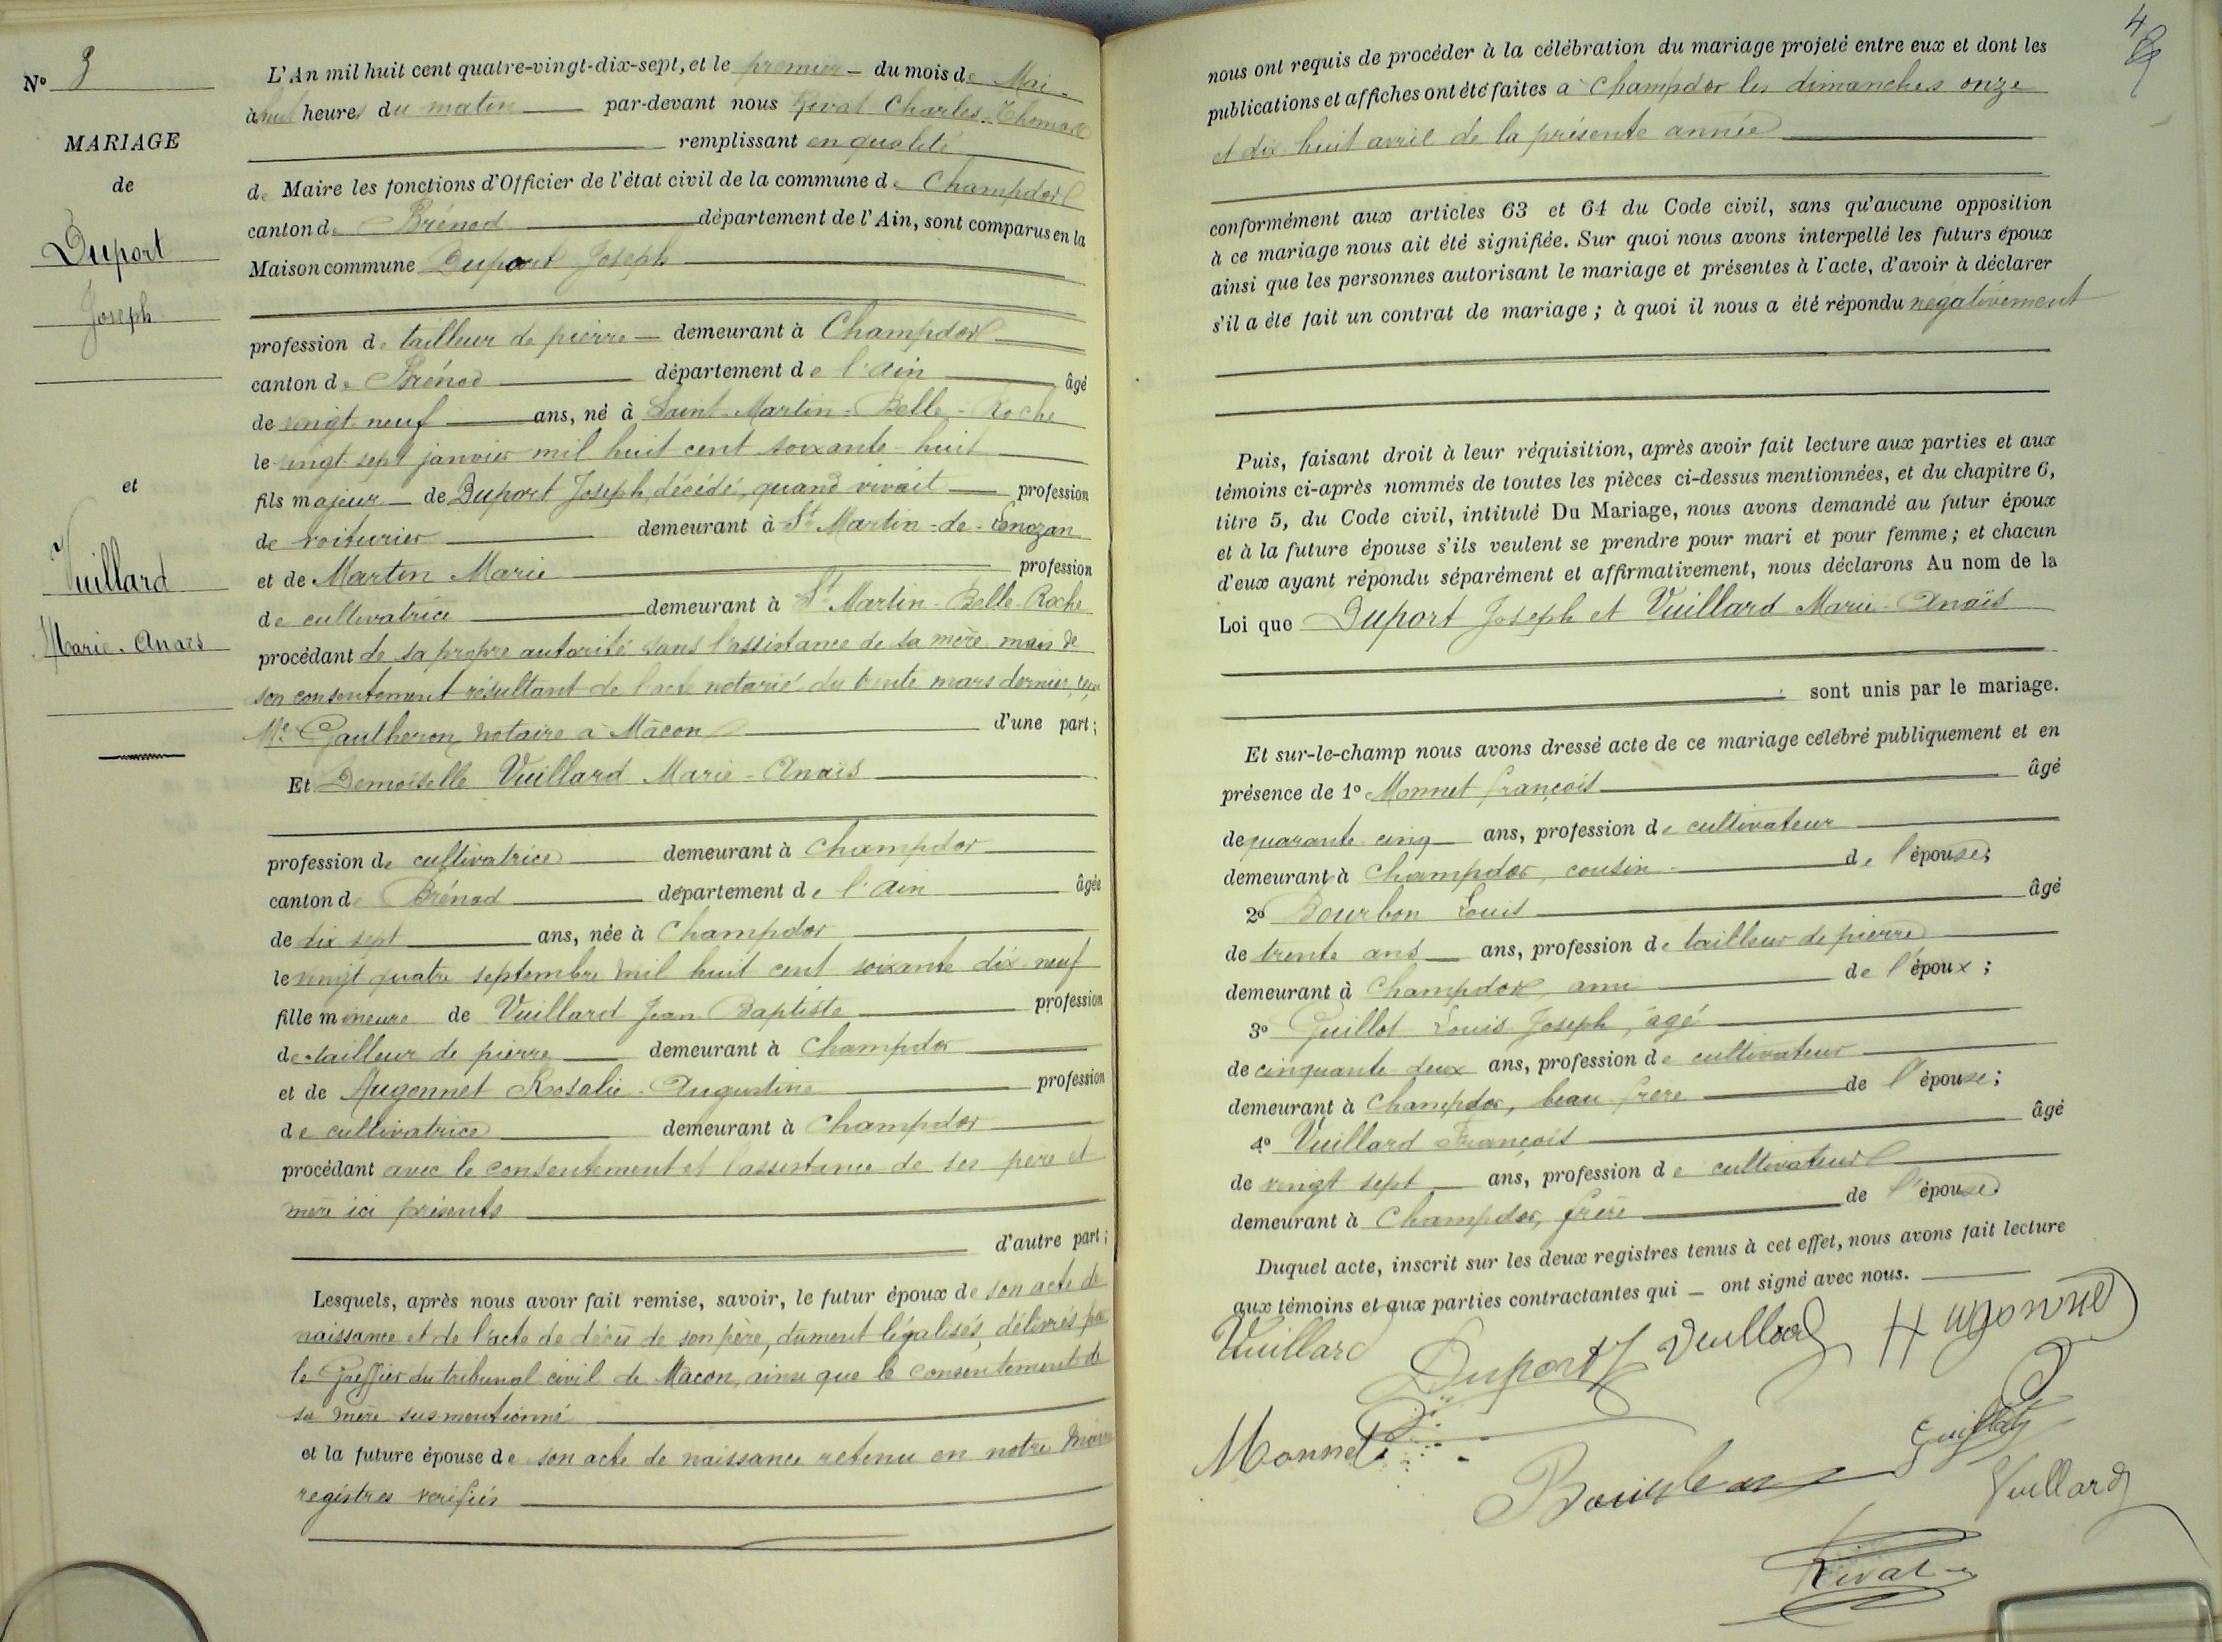 N° 3
MARIAGE
de
Duport
Joseph
et
Vuillard
Marie-Anaïs
L'An mil huit cent quatre-vingt-dix-sept, et le premier du mois de Mai
à huit heures du matin par-devant nous Rival Charles-Thomas
remplissant en qualité
de Maire les fonctions d'Officier de l'état civil de la commune de Champdor
canton de Brénod département de l'Ain, sont comparus en la
Maison commune Duport Joseph
profession de tailleur de pierre demeurant à Champdor
canton de Brénod département de l'Ain âgé
de vingt-neuf ans, né à Saint-Martin-Belle-Roche
le vingt sept janvier mil huit cent soixante-huit
fils majeur de Duport Joseph, décédé, quand vivait profession
de voiturier demeurant à St Martin-de-Senozan
et de Martin Marie profession
de cultivatrice demeurant à St Martin-Belle-Roche
procédant de sa propre autorité sans l'assistance de sa mère mais de
son consentement résultant de l'acte notarié du trente mars dernier, reçu
Me Gautheron notaire à Mâcon d'une part;
Et Demoiselle Vuillard Marie-Anaïs
profession de cultivatrice demeurant à Champdor
canton de Brénod département de l'Ain âgée
de dix sept ans, née à Champdor
le vingt quatre septembre mil huit cent soixante dix-neuf
fille mineure de Vuillard Jean Baptiste profession
de tailleur de pierre demeurant à Champdor
et de Hugonnet Rosalie-Augustine profession
de cultivatrice demeurant à Champdor
procédant avec le consentement et l'assistance de ses père et
mère ici présents
d'autre part;
Lesquels, après nous avoir fait remise, savoir, le futur époux de son acte de
naissance et de l'acte de décès de son père, dûment légalisés, délivrés par
le Greffier du tribunal civil de Macon, ainsi que le consentement de
sa mère susmentionné
et la future épouse de son acte de naissance retenu en notre Mairie
registres vérifiés
4
nous ont requis de procéder à la célébration du mariage projeté entre eux et dont les
publications et affiches ont été faites à Champdor les dimanches onze
et dix huit avril de la présente année
conformément aux articles 63 et 64 du Code civil, sans qu'aucune opposition
à ce mariage nous ait été signifiée. Sur quoi nous avons interpellé les futurs époux
ainsi que les personnes autorisant le mariage et présentes à l'acte, d'avoir à déclarer
s'il a été fait un contrat de mariage; à quoi il nous a été répondu négativement
Puis, faisant droit à leur réquisition, après avoir fait lecture aux parties et aux
témoins ci-après nommés de toutes les pièces ci-dessus mentionnées, et du chapitre 6,
titre 5, du Code civil, intitulé Du Mariage, nous avons demandé au futur époux
et à la future épouse s'ils veulent se prendre pour mari et pour femme; et chacun
d'eux ayant répondu séparément et affirmativement, nous déclarons Au nom de la
Loi que Duport Joseph et Vuillard Marie-Anaïs
sont unis par le mariage.
Et sur-le-champ nous avons dressé acte de ce mariage célébré publiquement et en
présence de 1° Monnet françois âgé
de quarante-cinq ans, profession de cultivateur
demeurant à Champdor, cousin de l'épouse;
2° Bourbon Louis âgé
de trente ans ans, profession de tailleur de pierre
demeurant à Champdor, ami de l'époux;
3° Guillot Louis Joseph, âgé
de cinquante-deux ans, profession de cultivateur
demeurant à Champdor, beau frère de l'épouse;
4° Vuillard François âgé
de vingt sept ans, profession de cultivateur
demeurant à Champdor, frère de l'épouse
Duquel acte, inscrit sur les deux registres tenus à cet effet, nous avons fait lecture
aux témoins et aux parties contractantes qui ont signé avec nous.
Vuillard Duport J Vuillard Hugonnet
Monnet Bourbon Guillot
Vuillard
Rival